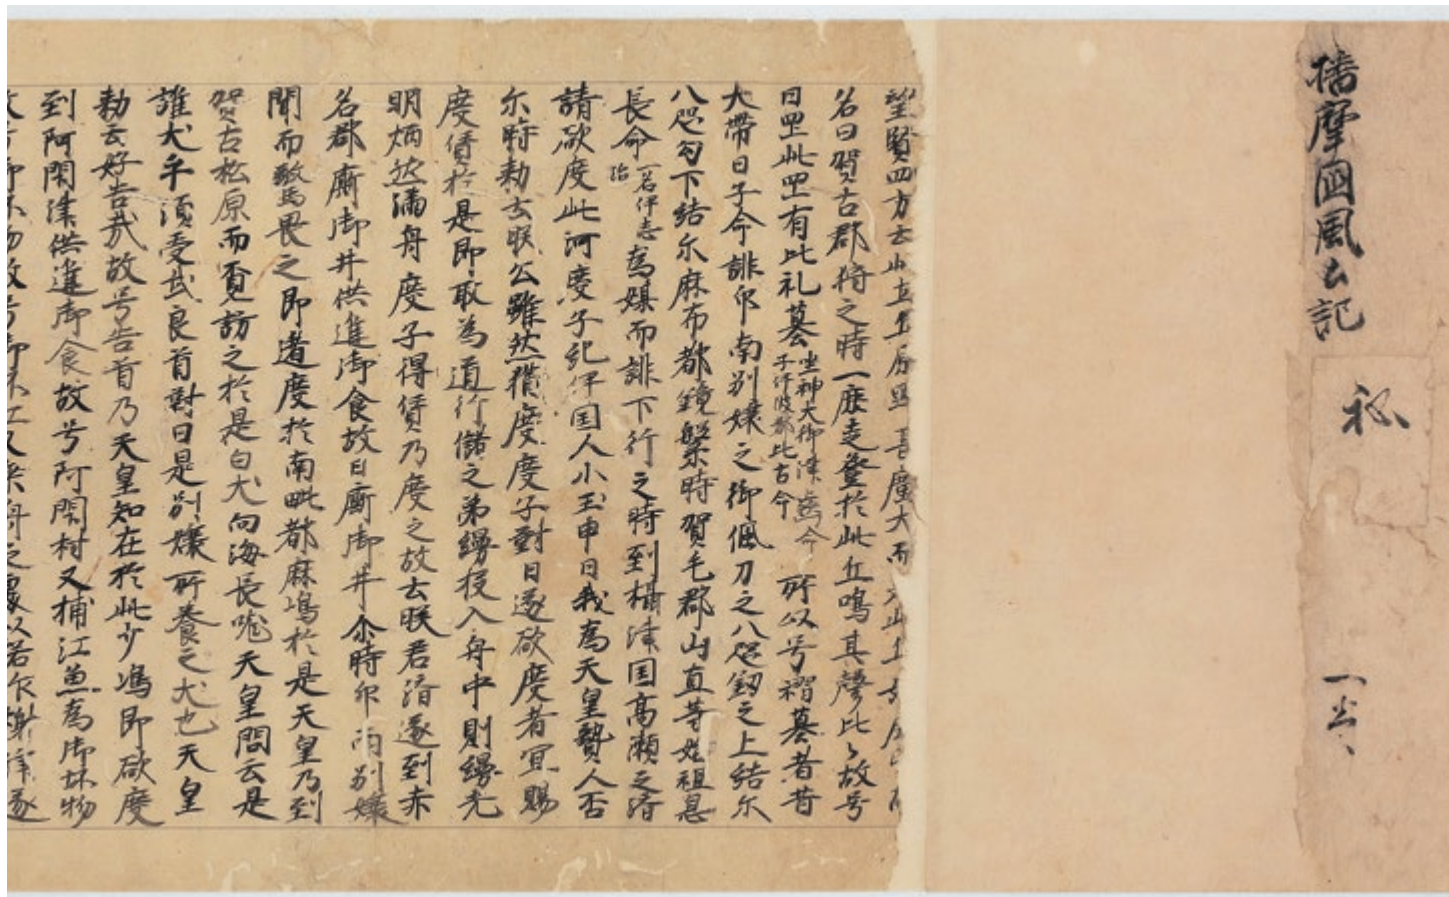 播磨國風土記
秘
望賢四方云此丘
名曰賀古郡狩之時一鹿走登於此丘鳴其聲比々故号
日岡此岡有比礼墓坐神大御津歯命子伊波都比古命所以号褶墓者昔
大帯日子命誂印南別嬢之時御佩刀之八咫剱之上結尓
八咫勾下結尓麻布都鏡繋時賀毛郡山直等始祖息
長命一名伊志治為媒而誂下行之時到攝津国高瀬之済
請欲度此河度子紀伊国人小玉申曰我為天皇贄人否
尓時勅云朕公雖然猶度度子對曰遂欲度者宜賜
度賃於是即取為道行儲之弟縵投入舟中則縵光
明炳然満舟度子得賃乃度之故云朕君済遂到赤
名郡廝御井供進御食故曰廝御井尓時印南別嬢
聞而驚畏之即遁度於南毗都麻嶋於是天皇乃到
賀古松原而覓訪之於是白犬向海長吠天皇問云是
誰犬乎須受武良首對曰是別嬢所養之犬也天皇
勅云好告哉故号告首乃天皇知在於此少嶋即欲度
到阿閇津供進御食故号阿閇村又捕江魚為御坏物